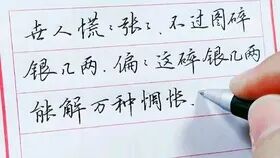 世人慌:张:.不过图碎
银几两.偏:这碎银几两
能解万种惆怅.